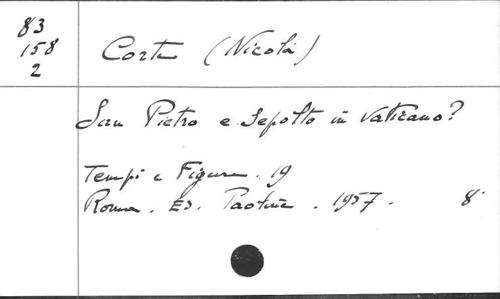 83
158
2
Corte (Nicola)
San Pietro e Sepolto in Vaticano?
Tempi e Figure. 19
Roma. Ed. Paoline. 1957. 8°